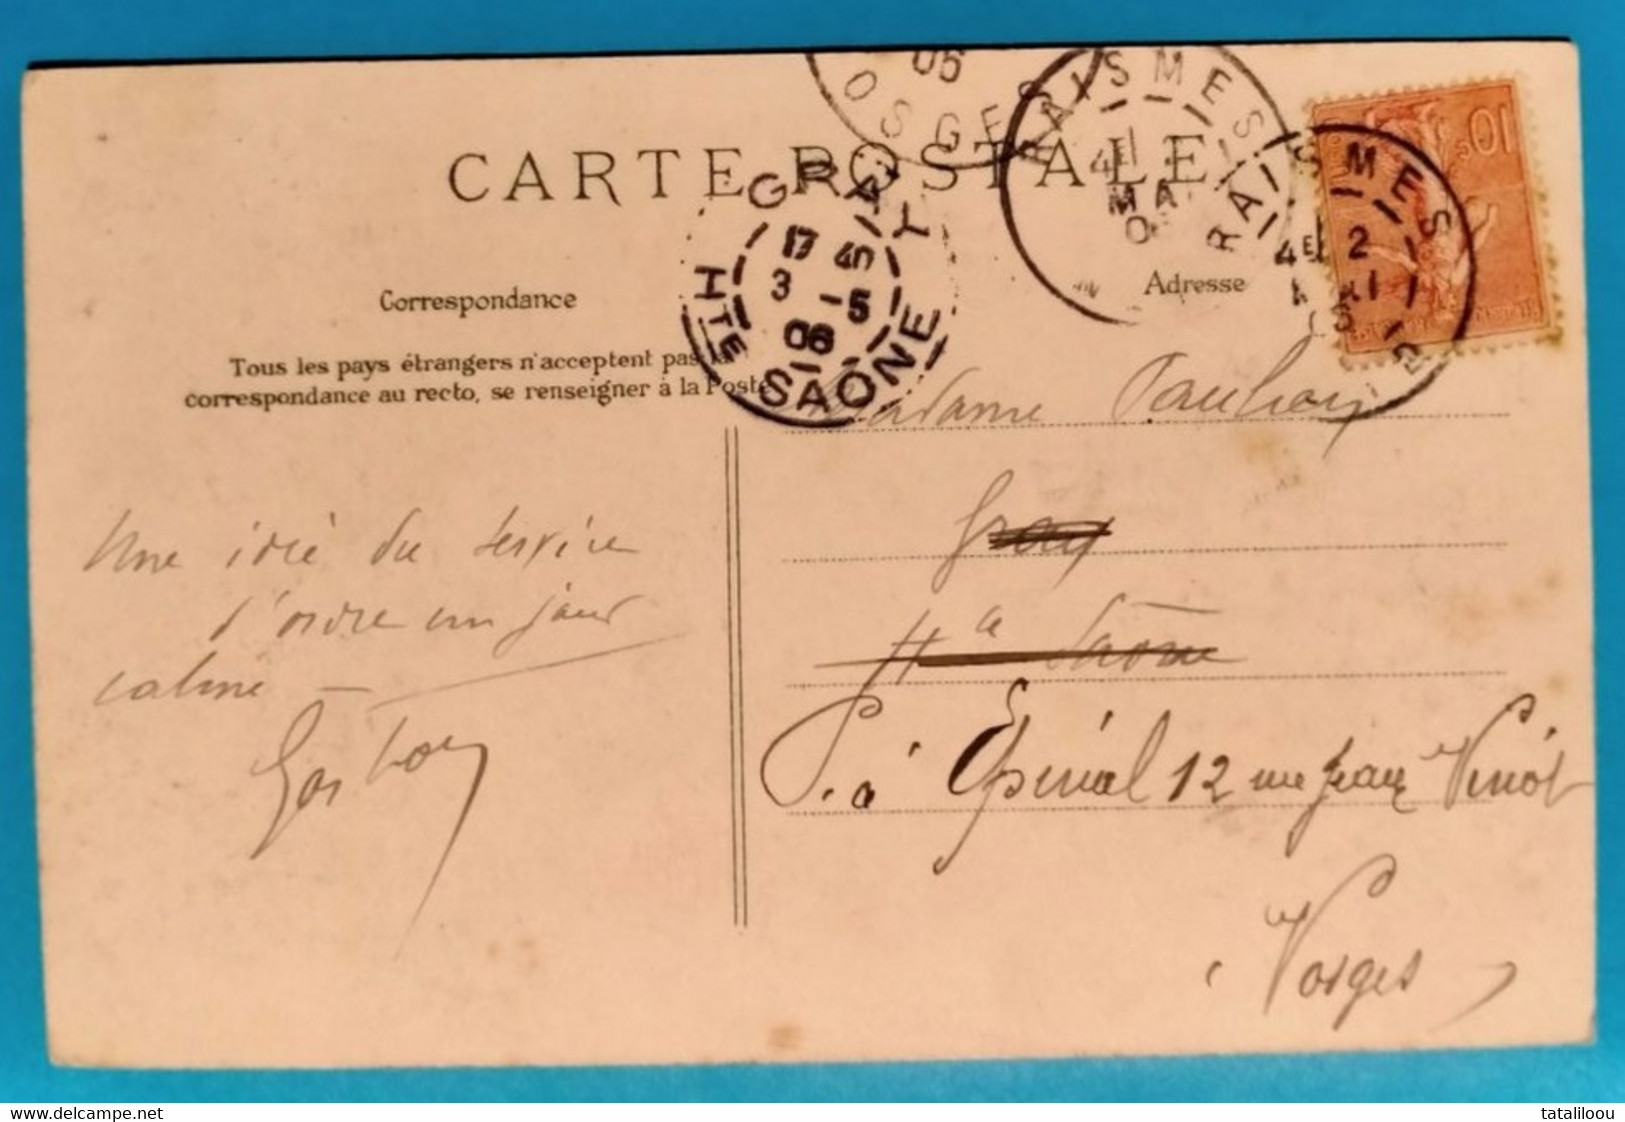 CARTE POSTALE
OSGES
06
RAISMES
4E
MA
0
RAISMES
4E 2
10c
GRAY
17 40
3 -5
06
HTE SAÔNE
Correspondance
Adresse
Tous les pays étrangers n'acceptent pas la
correspondance au recto, se renseigner à la Poste
Madame
Gray
Hte Saône
à Epinal 12 rue Jean Vinot
Vosges
Une idée du service
d'ordre un jour
calme
delcampe.net
tataliloou